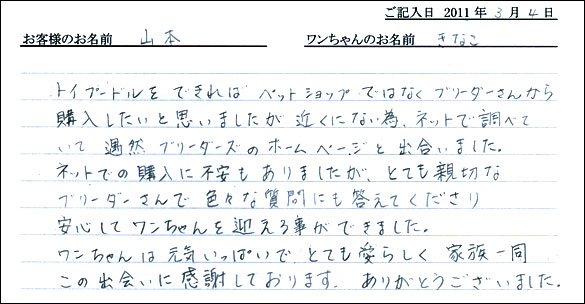 ご記入日 2011年 3月 4日
お客様のお名前 山本 ワンちゃんのお名前 きなこ
トイプードルをできれば ペットショップ ではなく ブリーダーさんから
購入したいと思いましたが 近くにない為、ネットで調べて
いて 遇然 ブリーダーズのホームページと出合いました。
ネットでの購入に不安もありましたが、とても親切な
ブリーダーさんで色々な質問にも答えてくださり
安心してワンちゃんを迎える事ができました。
ワンちゃんは元気いっぱいで、とても愛らしく 家族一同
この出会いに感謝しております。ありがとうございました。